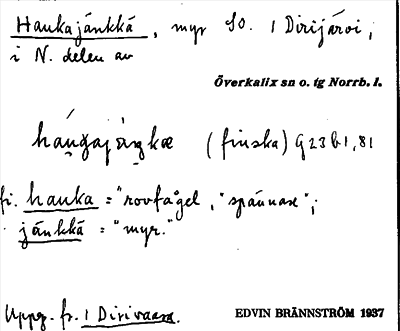 Haukajänkkä, myr SO. 1 Dirijärvi,
i N. delen av
Överkalix sn o. tg Norrb. l.
(finska) G23 b1, 81
fi. hauka = "rovfågel, "spännare";
jänkkä = "myr."
Uppg. fr. 1 Dirivaara.
EDVIN BRÄNNSTRÖM 1937